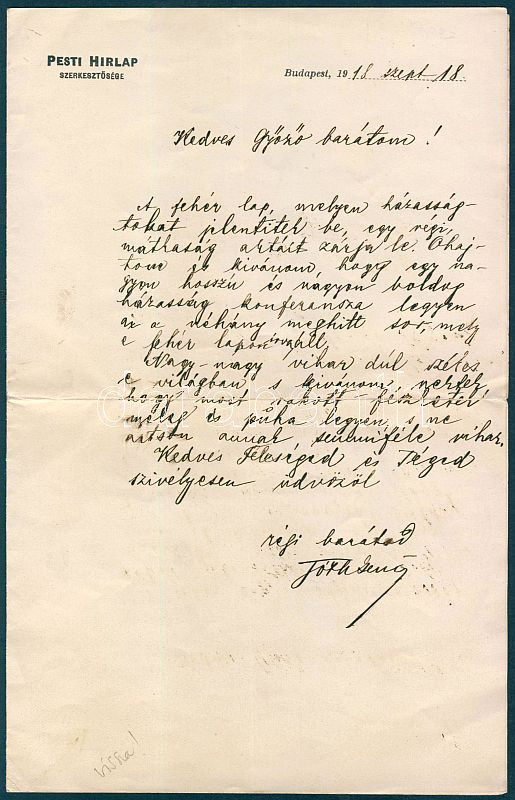 PESTI HIRLAP
SZERKESZTŐSÉGE
Budapest, 1918 szept 18.
Kedves Győző barátom!
A fehér lap, melyen házasság-
tokat jelentitek be, egy régi
mátkaság aktáit zárja le. Óhaj-
tom és kivánom, hogy egy na-
gyon hosszú és nagyon boldog
házasság konferansza legyen
ez a néhány meghitt sor, mely
e fehér lapon áll.
Nagy-nagy vihar dúl széles
e világban s kivánom,
hogy most rakott
meleg és puha legyen s ne
ártson annak semmiféle vihar.
Kedves Feleséged és Téged
szivélyesen üdvözöl
régi barátod
Tóth
vissza!